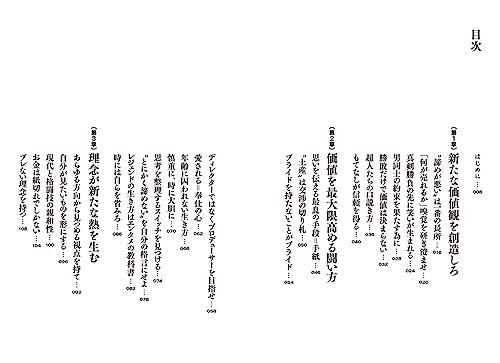 目次
はじめに … 006
〈第1章〉新たな価値観を創造しろ
“諦めが悪い”は一番の長所 … 016
「何が売れるか」嗅覚を研ぎ澄ませ … 020
真剣勝負の先に笑いが生まれる … 024
男同士の約束を果たす為に … 028
勝敗だけで価値は決まらない … 032
超人たちの口説き方 … 036
もてなしが信頼を得る … 040
〈第2章〉価値を最大限高める闘い方
思いを伝える最良の手段=手紙 … 046
“土産”は交渉の切り札 … 050
プライドを持たないことがプライド … 054
ディレクターではなくプロデューサーを目指せ … 058
愛される=奉仕の心 … 062
年齢に囚われない生き方 … 066
慎重に、時に大胆に … 070
思考を整理するスイッチを見つける … 074
“とにかく諦めない”を自分の格言にせよ … 078
レジェンドの生き方はエンタメの教科書 …
時には自らを省みろ … 086
〈第3章〉理念が新たな熱を生む
あらゆる方向から見つめる視点を持て … 092
自分が見たいものを形にする … 096
現代と格闘技の親和性 … 100
お金は紙切れでしかない … 104
ブレない理念を持つ … 108